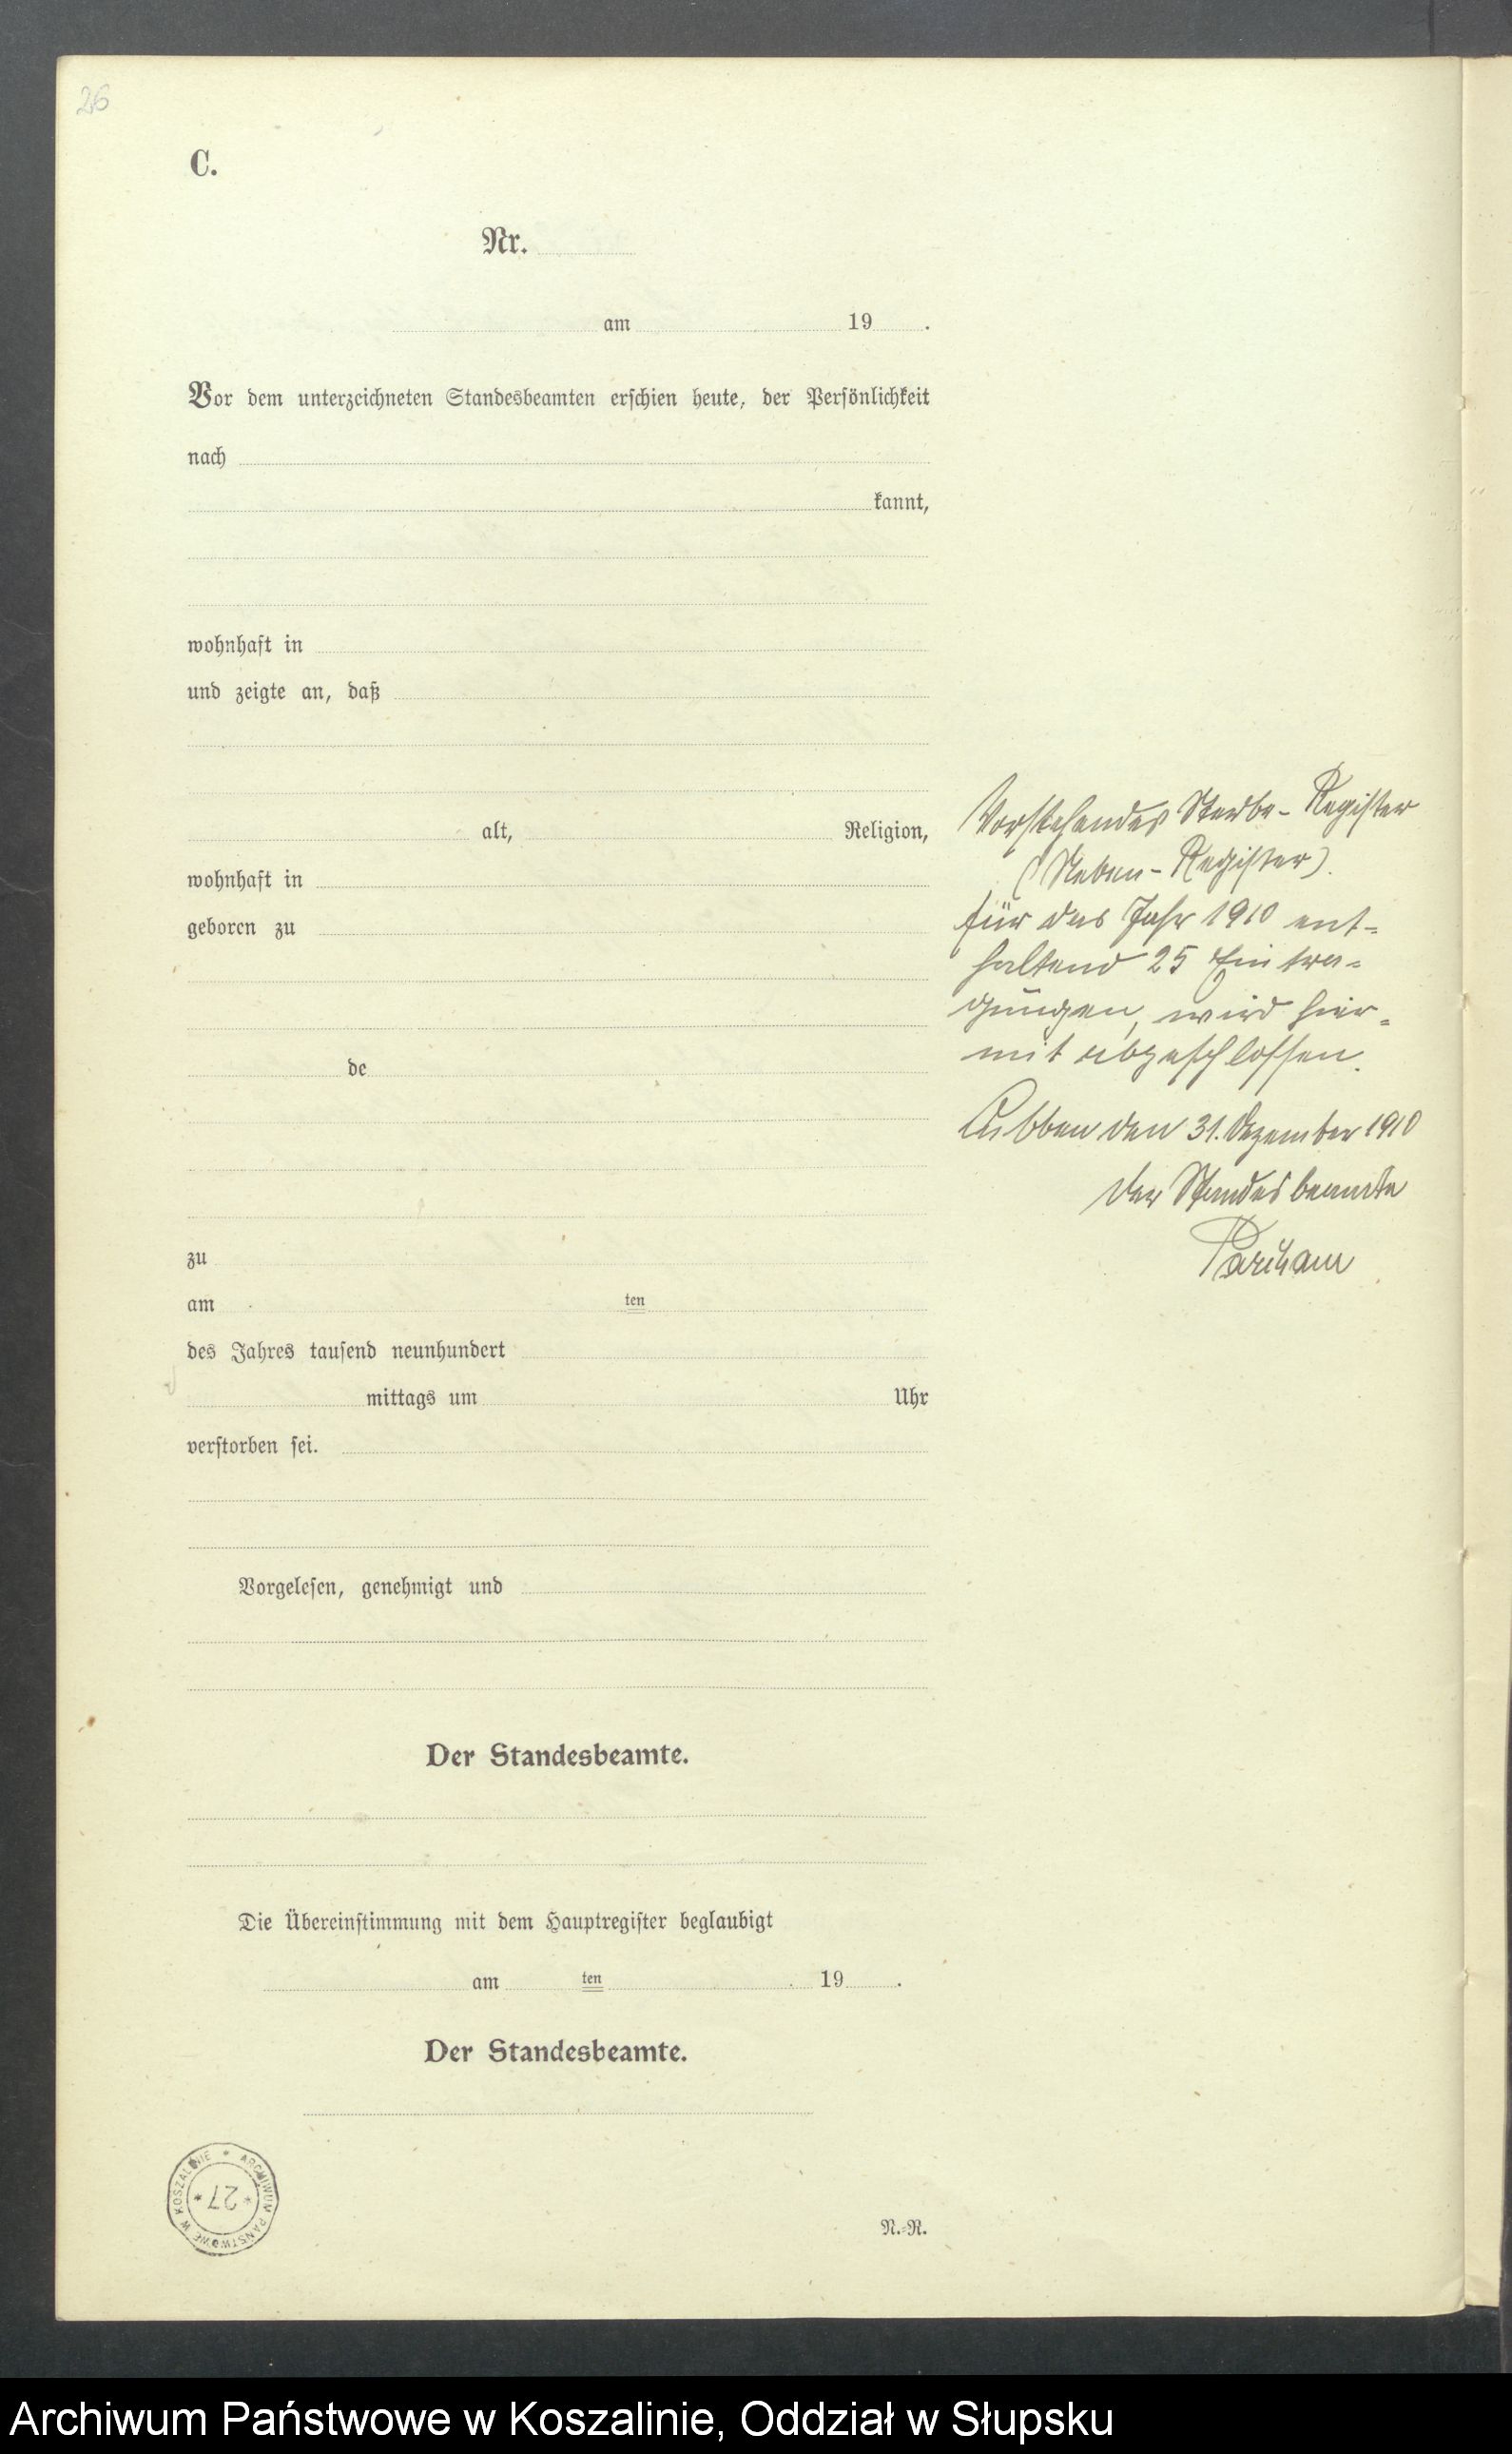 26
C.
Nr.
am 19 .
Vor dem unterzeichneten Standesbeamten erschien heute, der Persönlichkeit
nach
kannt,
wohnhaft in
und zeigte an, daß
alt, Religion,
wohnhaft in
geboren zu
de
zu
am ten
des Jahres tausend neunhundert
mittags um Uhr
verstorben sei.
Vorgelesen, genehmigt und
Der Standesbeamte.
Die Übereinstimmung mit dem Hauptregister beglaubigt
am ten 19 .
Der Standesbeamte.
N.=R.
Vorstehendes Sterbe-Register
(Neben-Register)
für das Jahr 1910 ent=
haltend 25 Eintra=
gungen, wird hier=
mit abgeschlossen.
Lubben den 31. Dezember 1910
Der Standesbeamte
ARCHIWUM PAŃSTWOWE W KOSZALINIE
* 27 *
Archiwum Państwowe w Koszalinie, Oddział w Słupsku